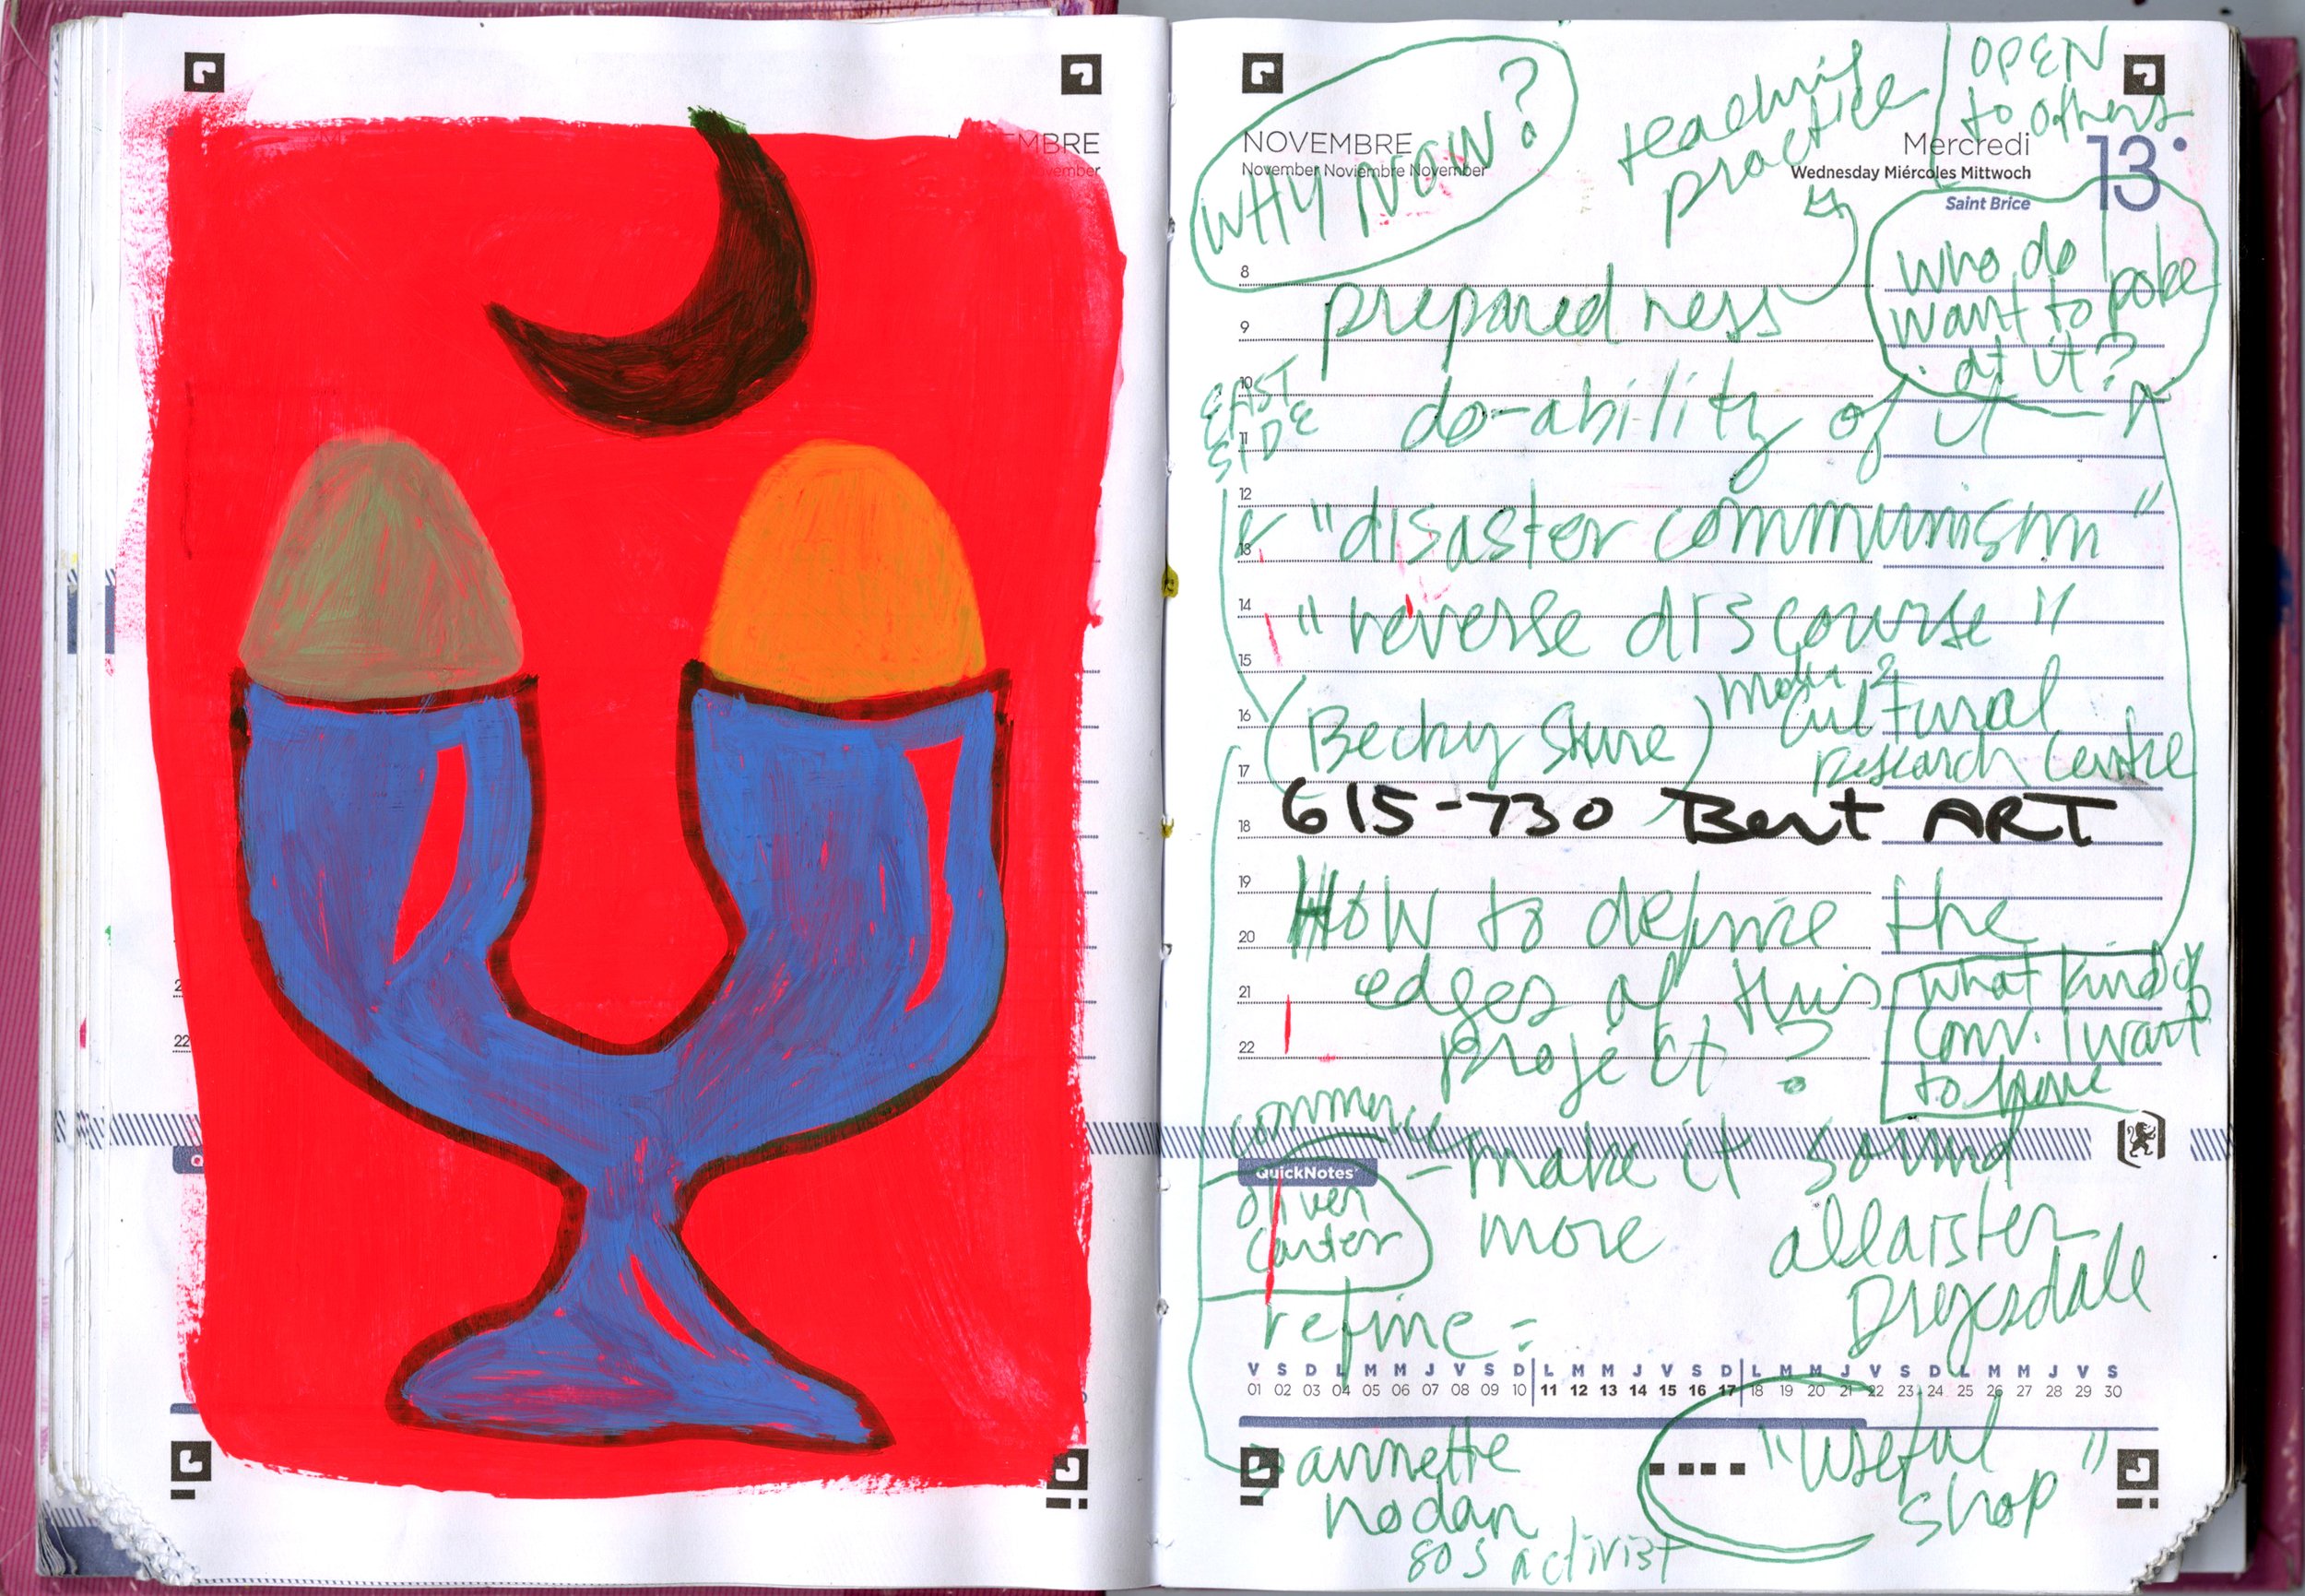 MBRE
vember
22
NOVEMBRE
November Noviembre November
WHY NOW?
teaching
practice
OPEN
to others
Mercredi
Wednesday Miércoles Mittwoch
13
Saint Brice
who do I
want to poke
at it?
8
preparedness
9
EAST
SIDE
10
do-ability of it
11
12
"disaster communism"
13
14
"reverse discourse"
15
16
(Becky
Cultural
research centre
17
615-730 Bent ART
18
19
How to define the
20
edges of this
21
project?
22
what kind of
conv. I want
to have
commerce
- make it sound
more allaister
Drysdale
QuickNotes
oliver
carter
refine =
V S D L M M J V S D L M M J V S D L M M J V S D L M M J V S
01 02 03 04 05 06 07 08 09 10 11 12 13 14 15 16 17 18 19 20 21 22 23 24 25 26 27 28 29 30
annette
nodan
80s activist
"useful
shop"